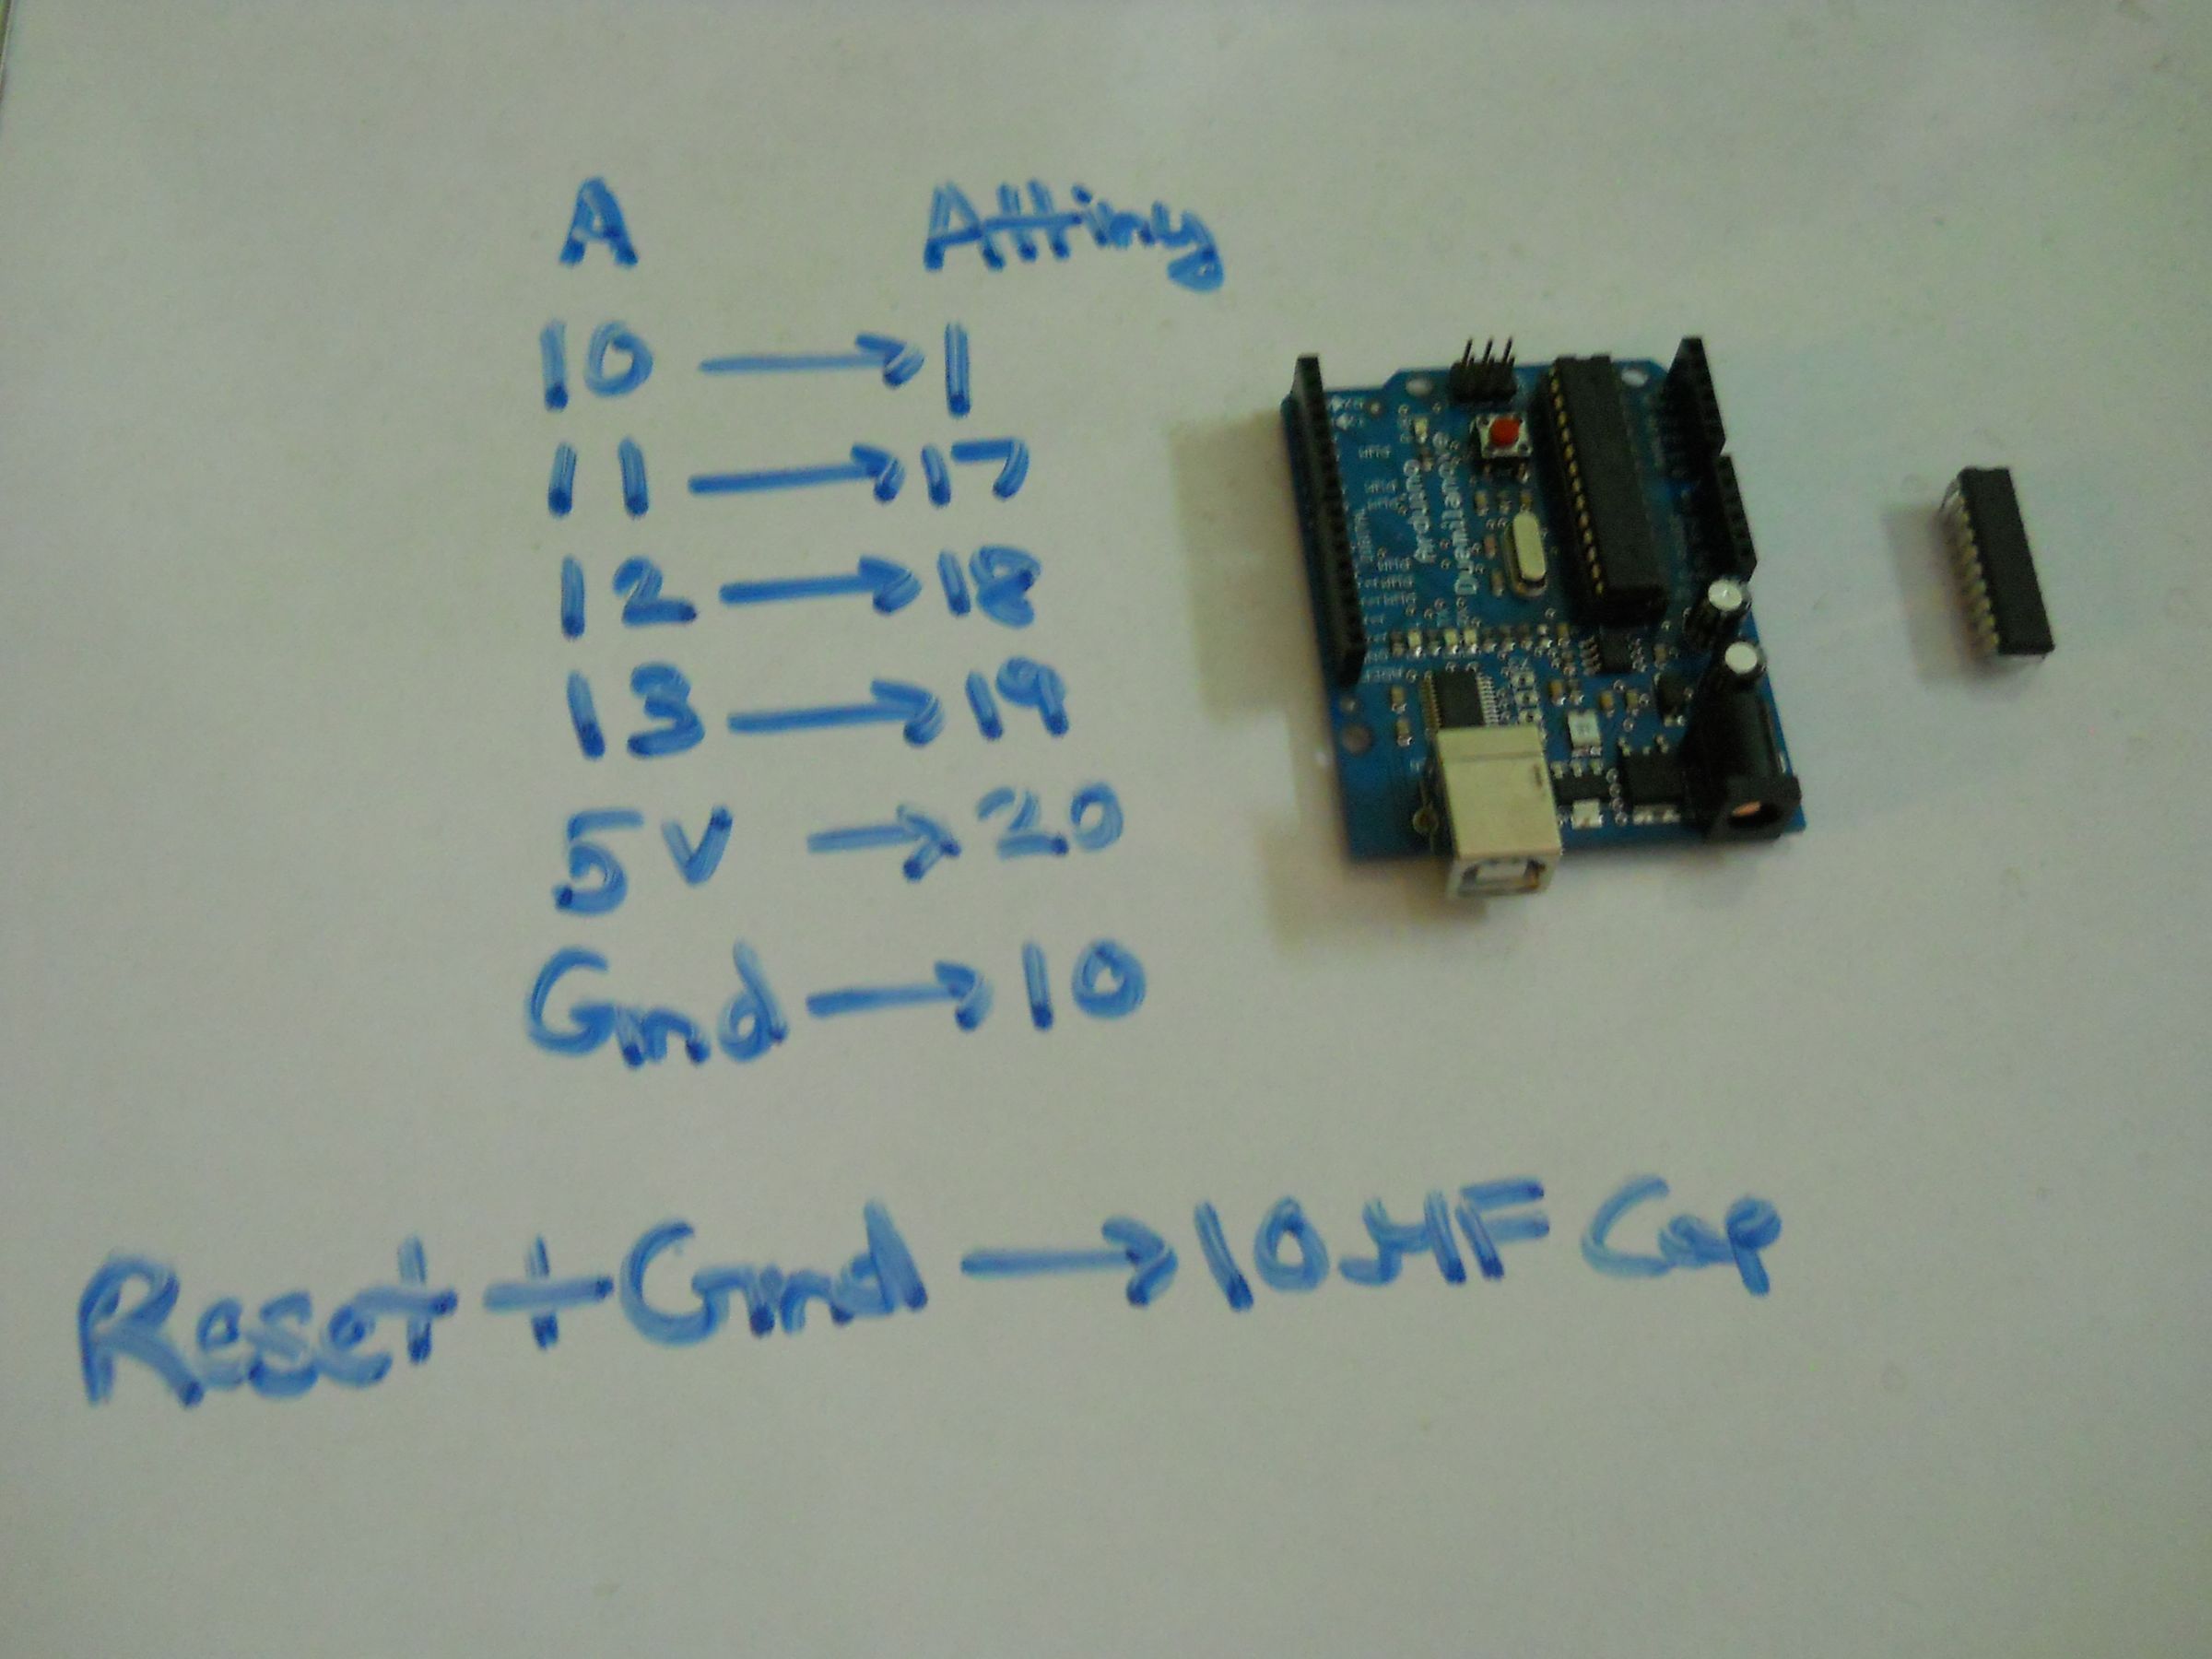 A Attiny
10 → 1
11 → 17
12 → 18
13 → 19
5V → 20
Gnd → 10
Reset + Gnd → 10 µF Cap
Arduino
Duemilanove